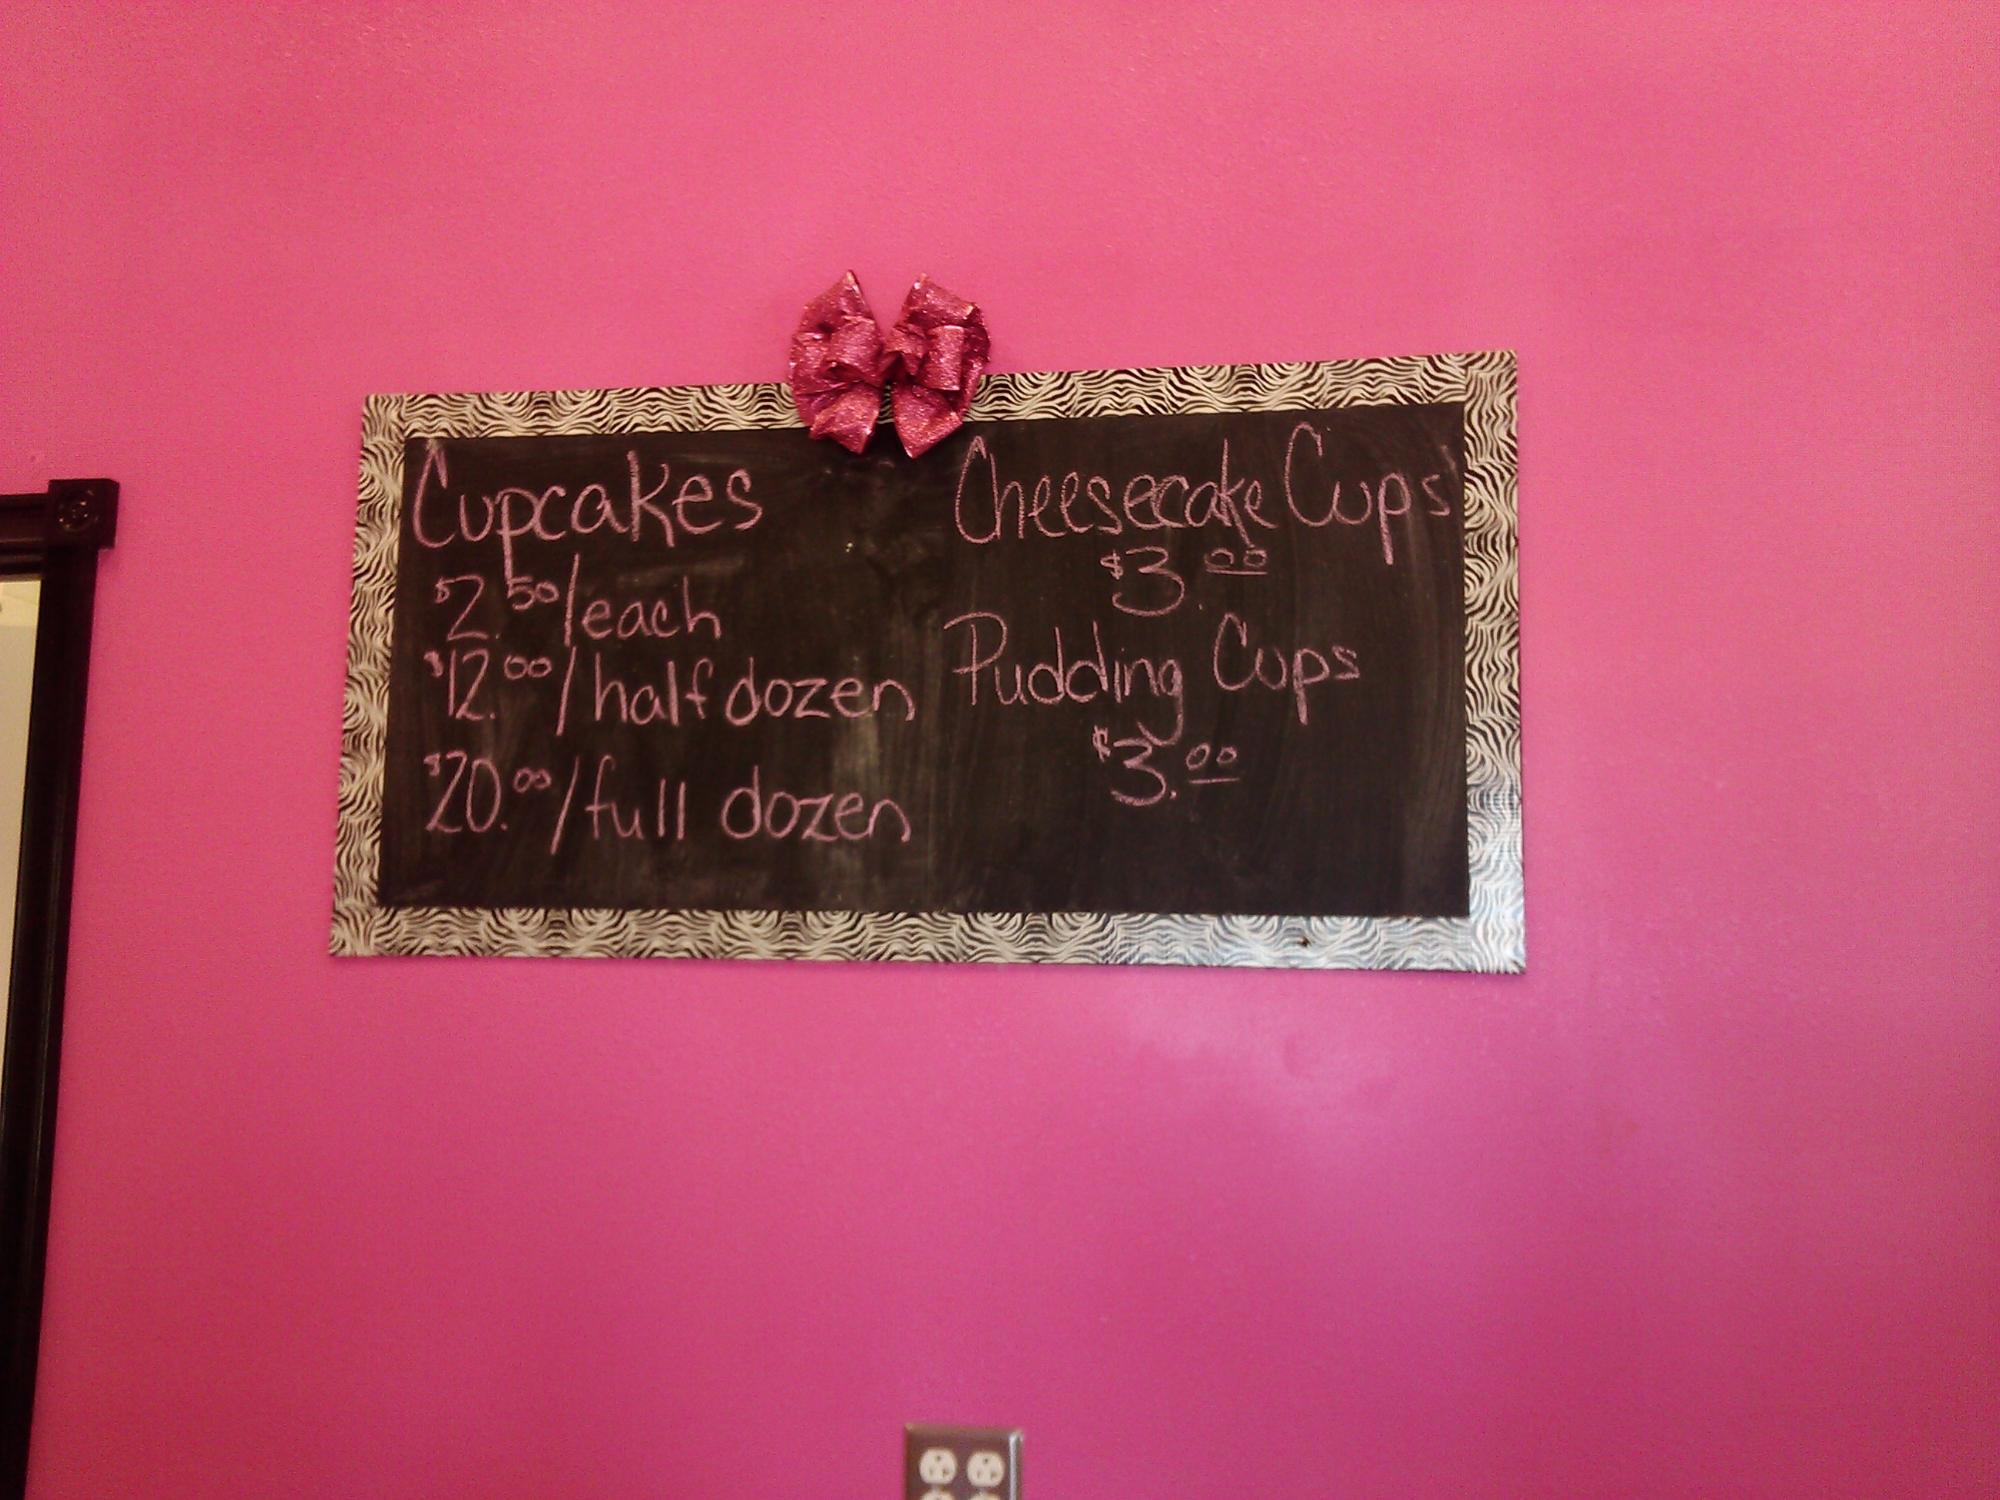 Cupcakes
$2.50/each
$12.00/half dozen
$20.00/full dozen
Cheesecake Cups
$3.00
Pudding Cups
$3.00